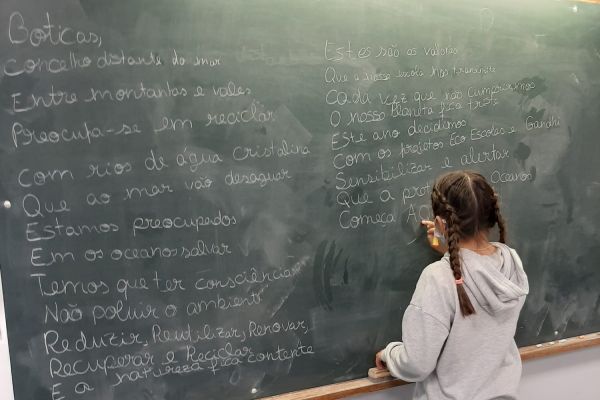 Boticas,
Concelho distante do mar
Entre montanhas e vales
Preocupa-se em reciclar
Com rios de água cristalina
Que ao mar vão desaguar
Estamos preocupados
Em os oceanos salvar
Temos que ter consciência
Não poluir o ambiente
Reduzir, Reutilizar, Renovar,
Recuperar e Reciclar
E a natureza fica contente
Estes são os valores
Que a nossa escola nos transmite
Cada vez que não cumprirmos
O nosso Planeta fica triste
Este ano decidimos
Com os projetos Eco Escolas e Gandhi
Sensibilizar e alertar
Que a oceanos
Começa